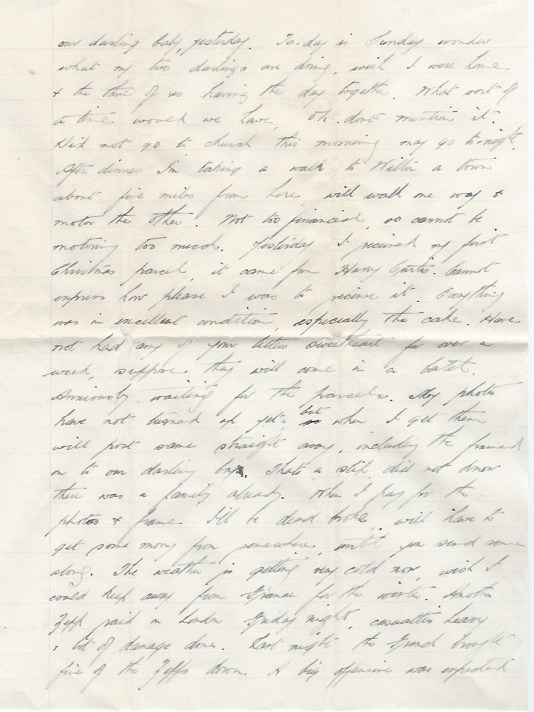 our darling baby, yesterday. To-day is Sunday wonder
what my two darlings are doing, wish I were home
& the three of us having the day together. What sort of
a time would we have, Oh don't mention it.
Did not go to church this morning may go to-night.
After dinner I'm taking a walk to Wilton a town
about five miles from here, will walk one way &
motor the other. Not too financial, so cannot be
motoring too much. Yesterday I received my first
Christmas parcel, it came from Harry Curtis. Cannot
express how please I was to receive it. Everything
was in excellent condition, especially the cake. Have
not had any of your letters sweetheart for over a
week, suppose they will come in a batch.
Anxiously waiting for the parcels. My photos
have not turned up yet, but when I get them
will post same straight away, including the framed
on to our darling boy. That's a slip, did not know
there was a family already. When I pay for the
photos & frame I'll be dead broke, will have to
get some money from somewhere, until you send some
along. The weather is getting very cold now, wish I
could keep away from France for the winter. Another
Zepp raid in London Friday night, casualties heavy
& lot of damage done. Last night the French brought
five of the Zepps down. A big offensive was expected